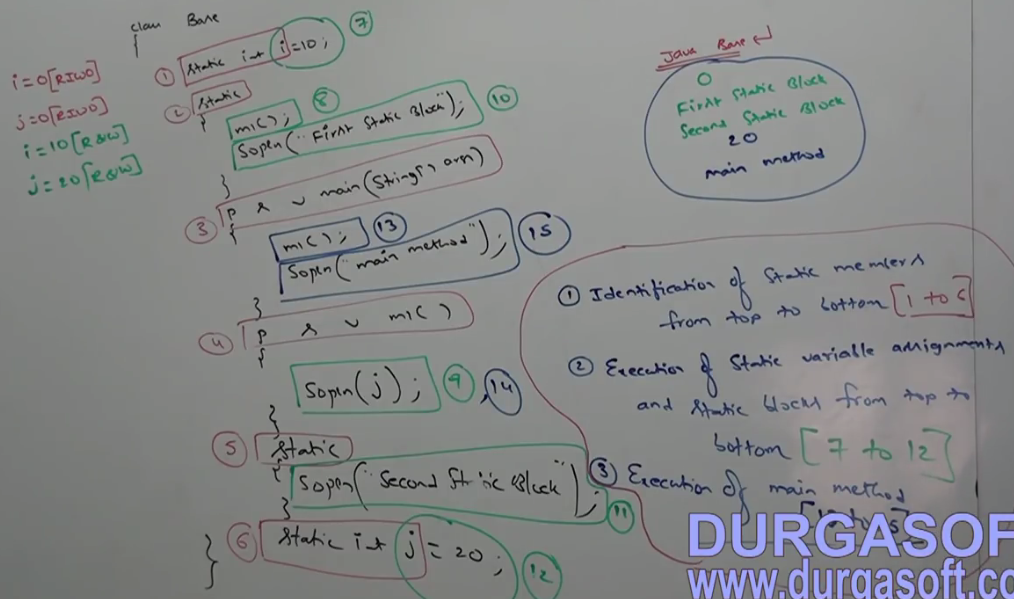 class Base
{
① static int i=10; ⑦
② static
{
m1(); ⑧
Sopln("First Static Block"); ⑩
}
③ P s v main(String[] args)
{
m1(); ⑬
Sopln("main method"); ⑮
}
④ P s v m1()
{
Sopln(j); ⑨, ⑭
}
⑤ static
{
Sopln("Second Static Block"); ⑪
}
⑥ static int j=20; ⑫
}
i=0[RIWO]
j=0[RIWO]
i=10[R&W]
j=20[R&W]
Java Base ↵
0
First Static Block
Second Static Block
20
main method
① Identification of static members
from top to bottom [1 to 6]
② Execution of static variable assignments
and static blocks from top to
bottom [7 to 12]
③ Execution of main method
DURGASOF
www.durgasoft.co